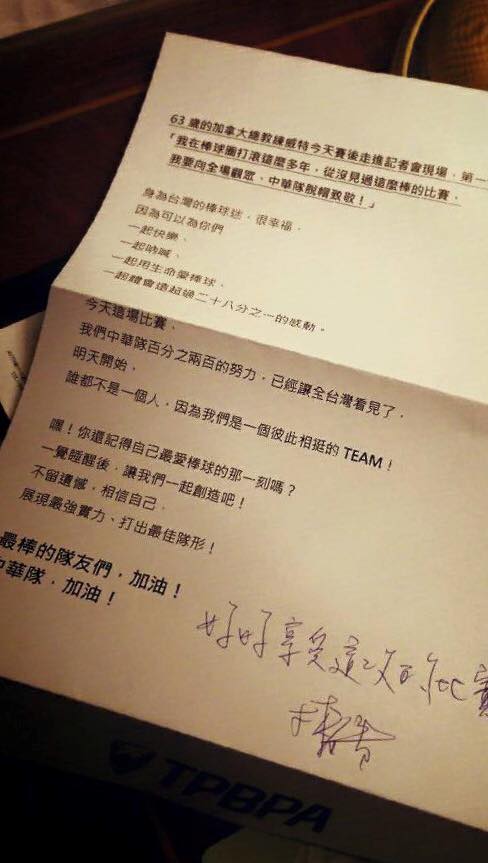 63 歲的加拿大總教練威特今天賽後走進記者會現場，第一
「我在棒球圈打滾這麼多年，從沒見過這麼棒的比賽，
我要向全場觀眾、中華隊脫帽致敬！」
身為台灣的棒球迷，很幸福，
因為可以為你們
一起快樂、
一起吶喊、
一起用生命愛棒球、
一起體會遠超過二十八分之一的感動。
今天這場比賽，
我們中華隊百分之兩百的努力，已經讓全台灣看見了，
明天開始，
誰都不是一個人，因為我們是一個彼此相挺的 TEAM！
嘿！你還記得自己最愛棒球的那一刻嗎？
一覺睡醒後，讓我們一起創造吧！
不留遺憾，相信自己，
展現最強實力、打出最佳隊形！
最棒的隊友們，加油！
中華隊，加油！
好好享受這次的比賽
TPBPA